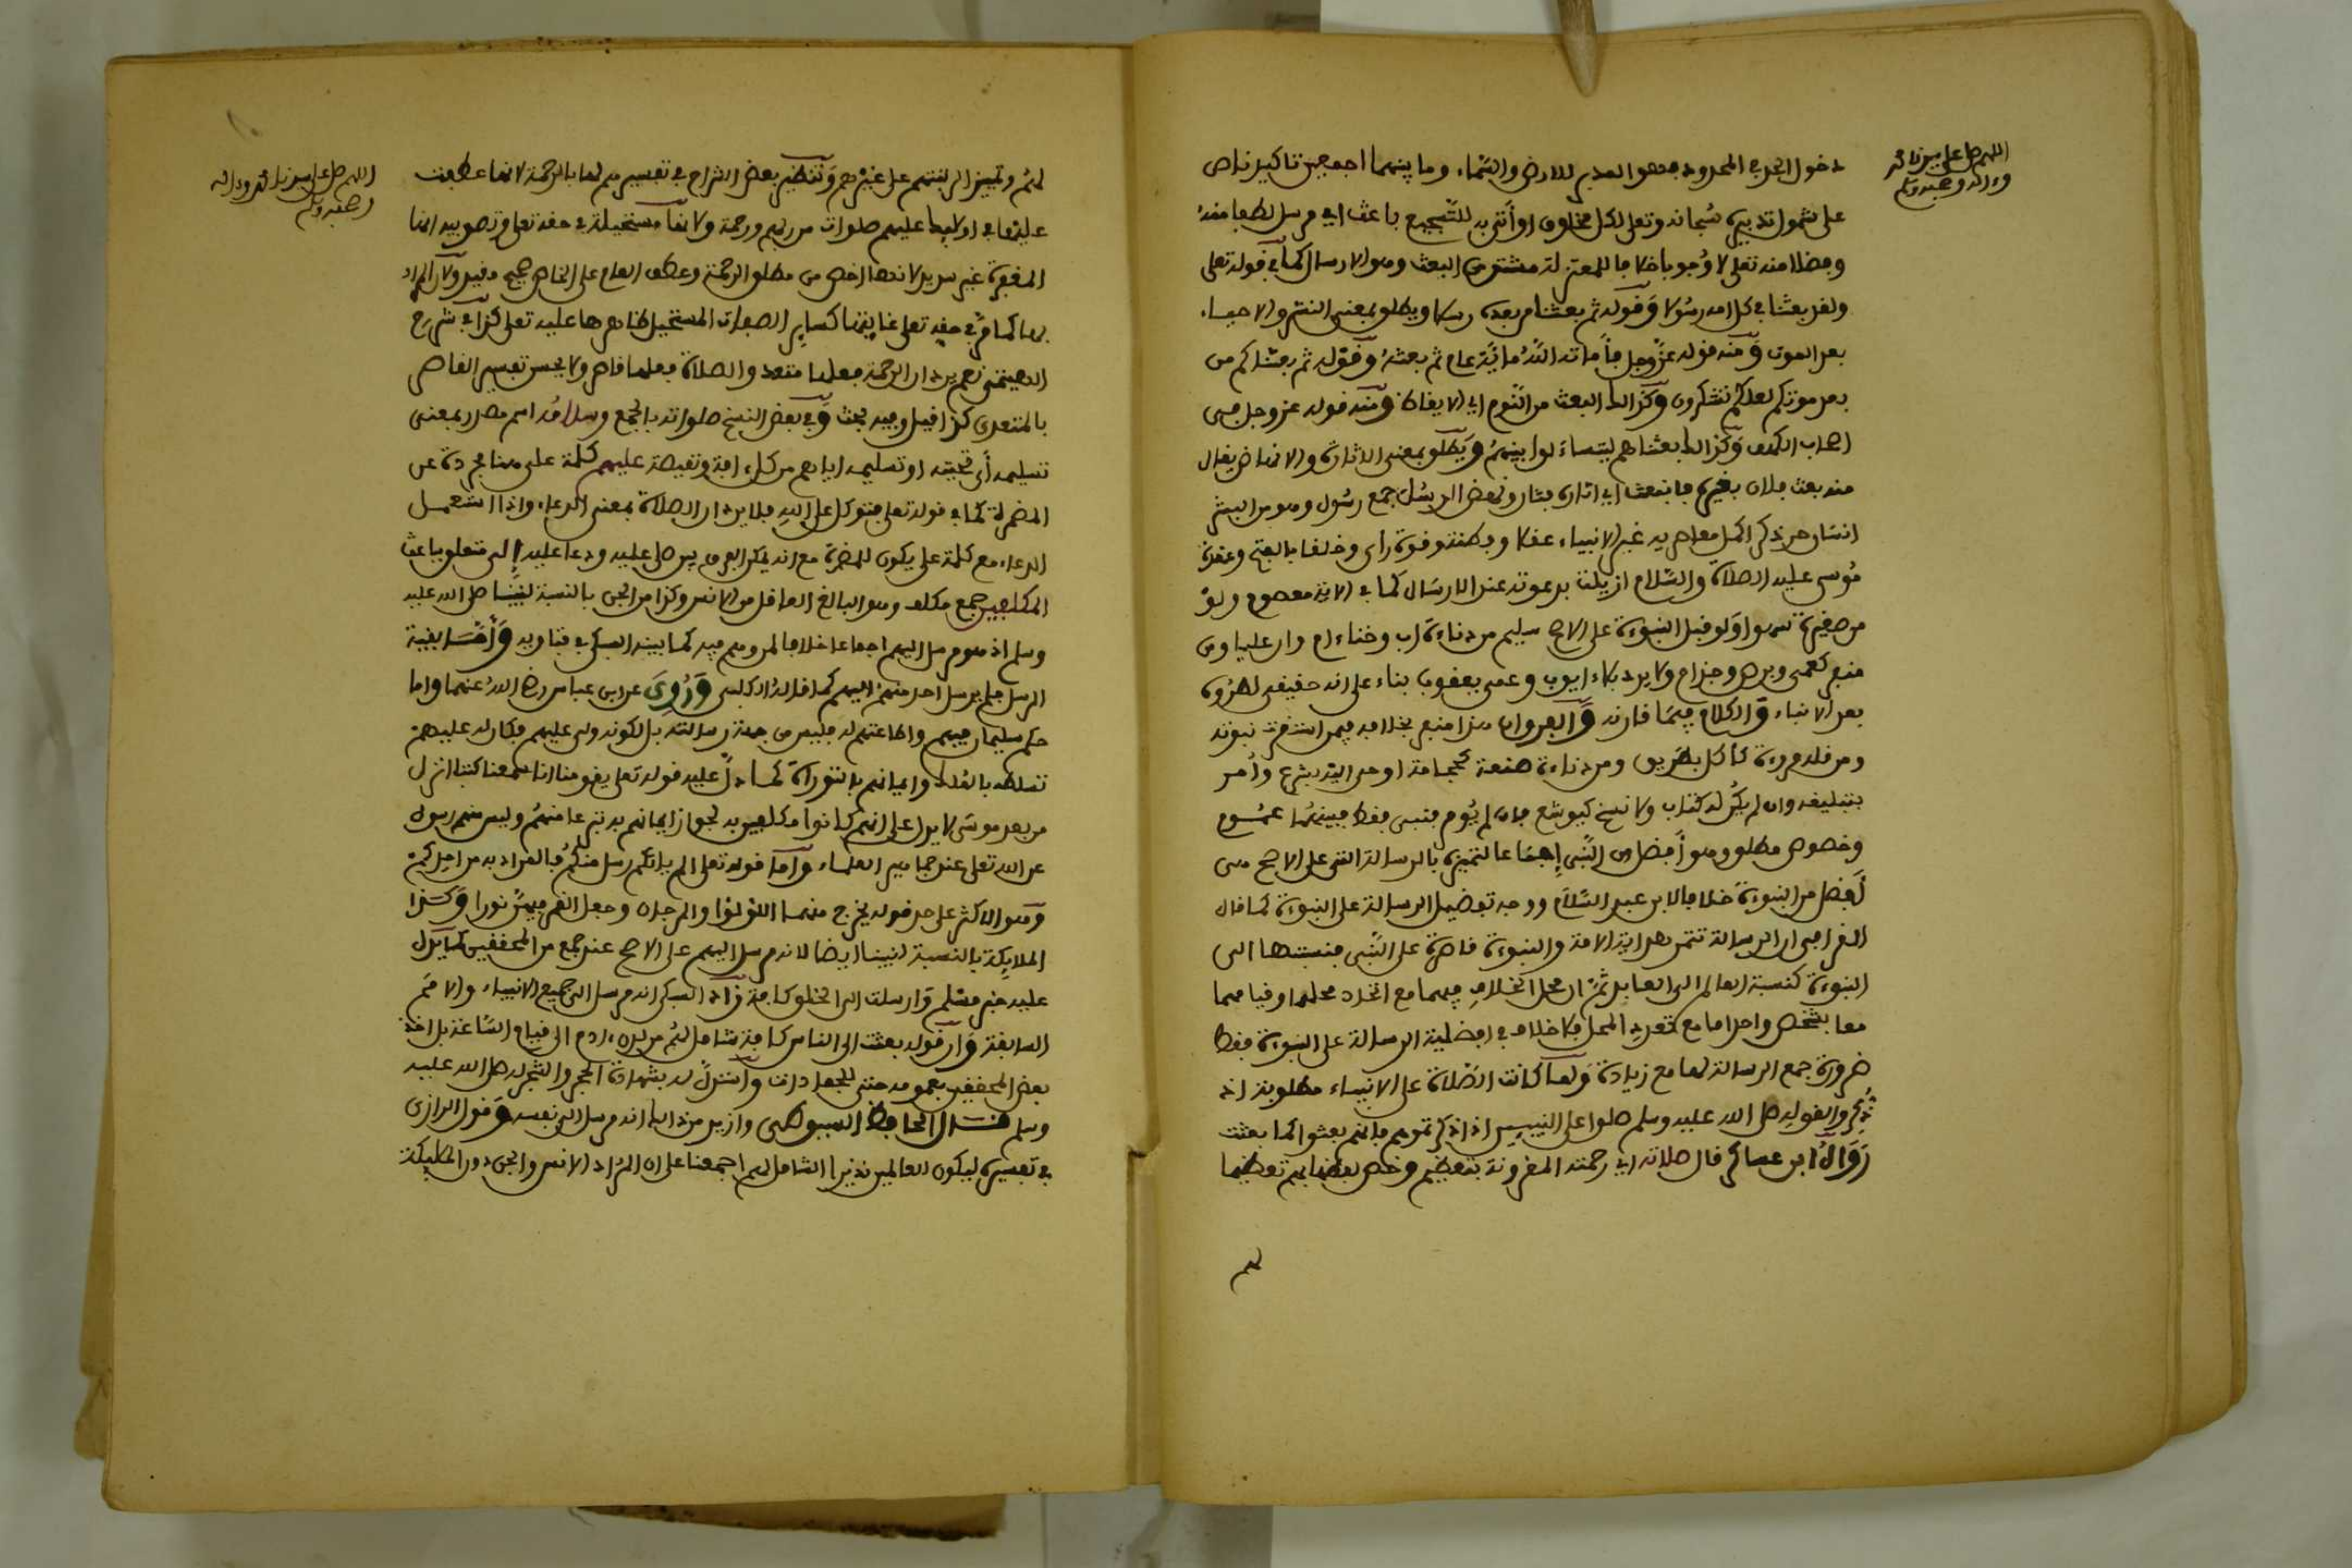 اللهم صل على سيدنا محمد
وءاله وصحبه وسلم
دخول الجزء في المحدود فهو المدبر للارض والسماء وما بينهما اجمعين تاكيد ناص
على شمول تدبيره سبحانه وتعلى لكل مخلوق او أتى به للتسجيع باعث اي مرسل لطفا منه
وفضلا منه تعلى لا وجوبا خلافا للمعتزلة مشتق من البعث وهو الارسال كما في قوله تعلى
ولقد بعثنا في كل امة رسولا وقوله ثم بعثنا من بعده رسلا ويطلق بمعنى النشر والاحياء
بعد الموت ومنه قوله عز وجل فأماته الله مائة عام ثم بعثه وقوله ثم بعثناكم من
بعد موتكم لعلكم تشكرون وكذلك البعث من النوم اي الايقاظ ومنه قوله عز وجل في
اصحاب الكهف وكذلك بعثناهم ليتساءلوا بينهم ويطلق بمعنى الاثارة والانهاض يقال
منه بعث فلان بعيره فانبعث اي اثاره فثار ونهض الرسل جمع رسول وهو من البشر
انسان حر ذكر اكمل معاصريه غير الانبياء عقلا وفطنة وقوة راي وخلقا بالفتح وعقدة
موسى عليه الصلاة والسلام ازيلت بدعوته عند الارسال كما في الاية معصوم ولو
من صغيرة سهوا ولو قبل النبوءة على الاصح سليم من دناءة اب وخناء ام وان عليا ومن
منفر كعمى وبرص وجذام ولا يرد بلاء ايوب وعمى يعقوب بناء على انه حقيقي لطروه
بعد الانباء والكلام فيما قارنه والفرق ان هذا منفر بخلافه فيمن استقرت نبوته
ومن قلة مروءة كاكل بطريق ومن دناءة صنعة كحجامة اوحي اليه بشرع وأمر
بتبليغه وان لم يكن له كتاب ولا نسخ كيوشع فان لم يؤمر فنبي فقط فبينهما عموم
وخصوص مطلق وهو أفضل من النبي إجماعا لتميزه بالرسالة التي على الاصح هي
أفضل من النبوءة خلافا لابن عبد السلام ووجه تفضيل الرسالة على النبوءة كما قال
القرافي ان الرسالة تثمر هداية الامة والنبوءة قاصرة على النبي فنسبتها الى
النبوءة كنسبة العالم الى العابد ثم ان محل الخلاف فيهما مع اتحاد محلهما وقيامهما
معا بشخص واحد اما مع تعدد المحل فلا خلاف في افضلية الرسالة على النبوءة فقط
ضرورة جمع الرسالة لها مع زيادة ولما كانت الصلاة على الانبياء مطلوبة اذ
ذكروا لقوله صلى الله عليه وسلم صلوا على النبيين اذا ذكرتموهم فانهم بعثوا كما بعثت
رواه ابن عساكر قال صلاته اي رحمته المقرونة بتعظيم وخص بعضا بهم تعظيما
لهم
اللهم صل على سيدنا محمد وءاله
وصحبه وسلم
لهم وتمييزا لرتبتهم على غيرهم وتنظير بعض الشراح في تفسيرهم لها بالرحمة لانها عطفت
عليها في اولئك عليهم صلوات من ربهم ورحمة ولانها مستحيلة في حقه تعلى وتصويبه انها
المغفرة غير سديد لانها اخص من مطلق الرحمة وعطف العام على الخاص صحيح مفيد ولان المراد
بها كما في حقه تعلى غايتها كساير الصفات المستحيل ظاهرها عليه تعلى كذا في شرح
الهيتمي نعم يرد ان الرحمة فعلها متعد والصلاة فعلها قاصر ولا يحسن تفسير القاصر
بالمتعدي كذا قيل وفيه بحث وفي بعض النسخ صلواته بالجمع وسلامه اسم مصدر بمعنى
تسليمه أي تحيته او تسليمه اياهم من كل ءافة ونقيصة عليهم كلمة على هنا مجردة عن
المضرة كما في قوله تعلى فتوكل على الله فلا يرد ان الصلاة بمعنى الدعاء واذا استعمل
الدعاء مع كلمة على يكون للمضرة مع انه يمكن الفرق بين صلى عليه ودعا عليه إلى متعلق بباعث
المكلفين جمع مكلف وهو البالغ العاقل من الانس وكذا من الجن بالنسبة لنبينا صلى الله عليه
وسلم اذ هو مرسل اليهم اجماعا خلافا لمن وهم فيه كما بينه السبكي في فتاويه وأما بقية
الرسل فلم يرسل احد منهم اليهم كما قاله الكلبي وروي عن ابن عباس رضي الله عنهما واما
حكم سليمان فيهم واطاعتهم له فليس من جهة رسالته بل لكونه ولي عليهم فكان له عليهم
تسلطه بالملك وايمانهم بالتوراة كما دل عليه قوله تعلى يقومنا انا سمعنا كتابا انزل
من بعد موسى لا يدل على انهم كانوا مكلفين به لجواز ايمانهم به تبرعا منهم وليس منهم رسول
عن الله تعلى عند جماهير العلماء واما قوله تعلى الم ياتكم رسل منكم فالمراد به من احدكم
وهو الاكثر على حد قوله يخرج منهما اللؤلؤا والمرجان وجعل القمر فيهن نورا وكذا
الملائكة بالنسبة لنبينا ايضا لانه مرسل اليهم على الاصح عند جمع من المحققين كما يدل
عليه خبر مسلم وارسلت الى الخلق كافة زاد السبكي انه مرسل الى جميع الانبياء والامم
السابقة وان قوله بعثت الى الناس كافة شامل لهم من لدن ءادم الى قيام الساعة بل اخذ
بعض المحققين بعمومه حتى للجمادات واستدل له بشهادة الحجر والشجر له صلى الله عليه
وسلم قال الحافظ السيوطي وازيد من ذلك انه مرسل الى نفسه وقول الرازي
في تفسيره ليكون للعالمين نذيرا الشامل لهم اجمعنا على ان المراد الانس والجن دون الملئكة